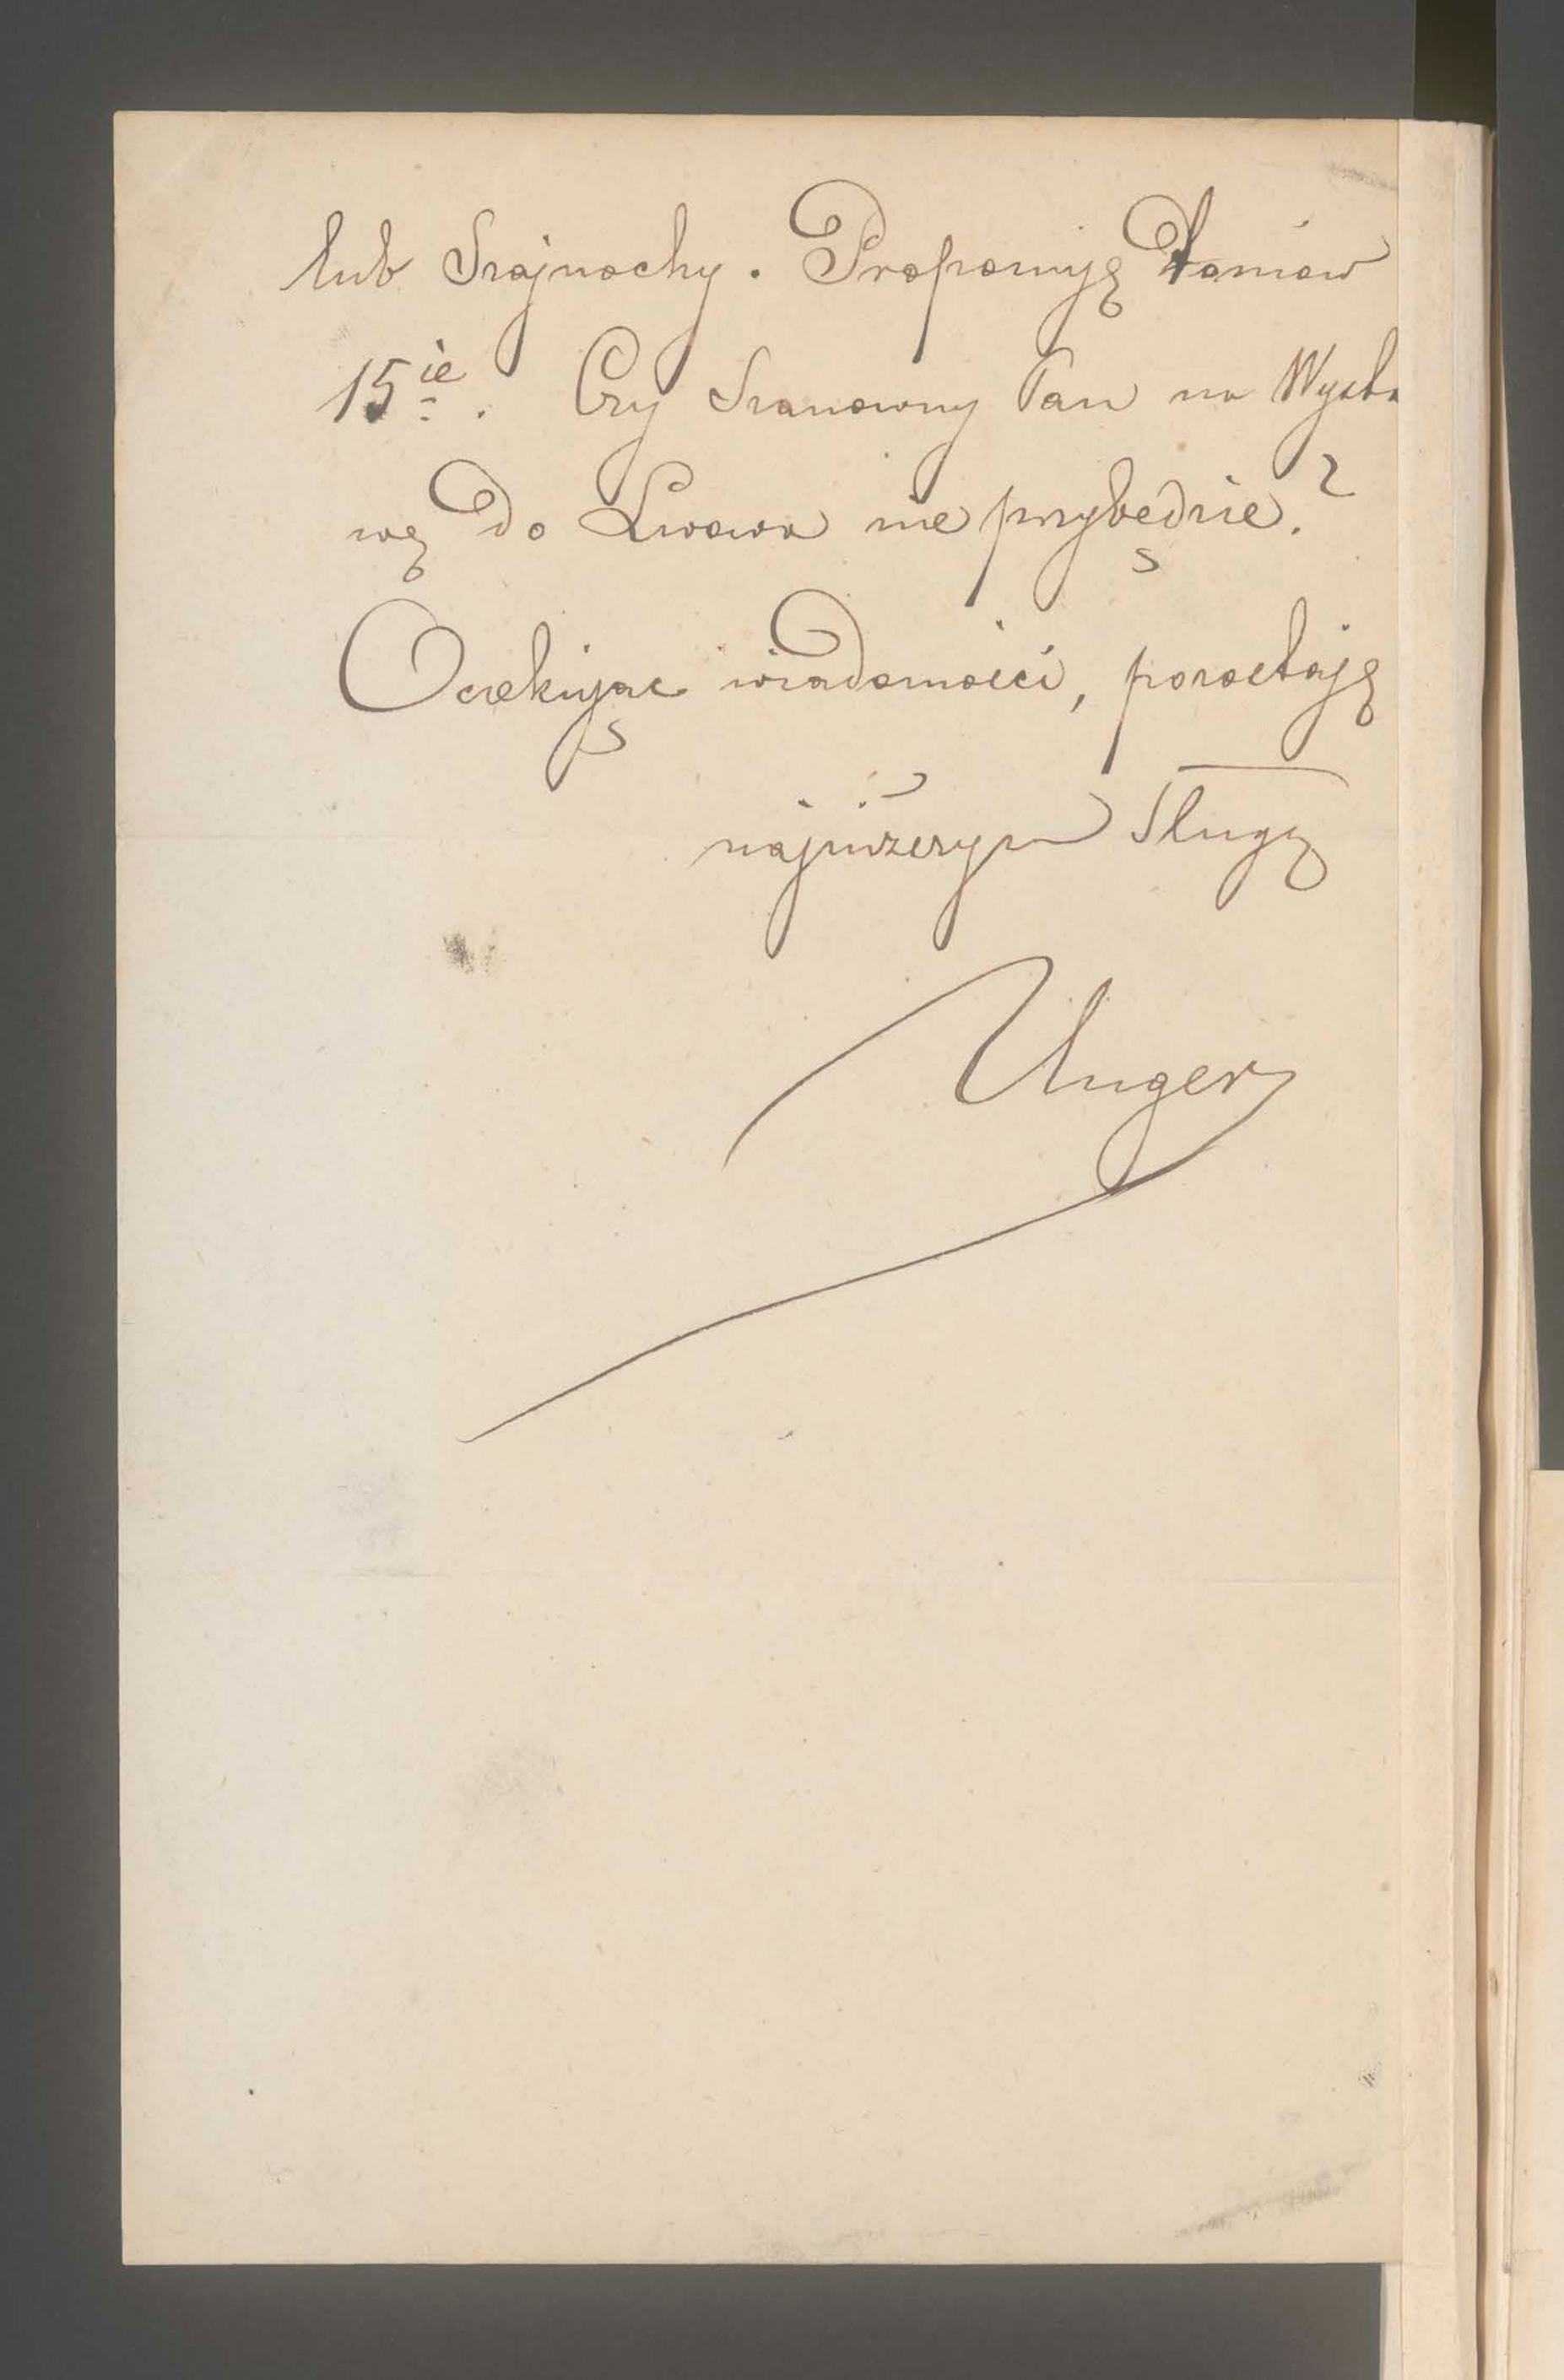 lub Szajnochy. Proponuję tomów
15ie. Czy Szanowny Pan na Wysta
wę do Lwowa nie przybędzie?
Oczekując wiadomości, pozostaję
najniższym Sługą
Unger